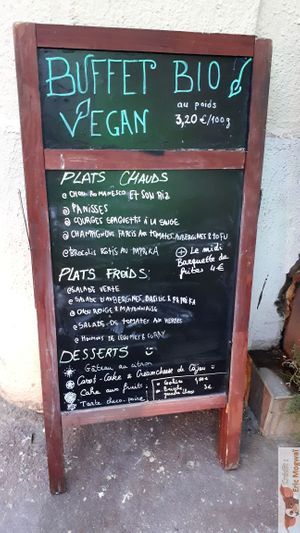 BUFFET BIO
VEGAN
au poids
3,20€/100g
PLATS CHAUDS
ET SON RIZ
PANISSES
COURGES SPAGHETTI À LA SAUGE
CHAMPIGNONS FARCIS AUX TOMATES, AUBERGINES & TOFU
BROCOLIS ROTIS AU PAPRIKA
Le midi
Barquette de
frites 4€
PLATS FROIDS
SALADE VERTE
SALADE D'AUBERGINES, BASILIC & PAPRIKA
CHOU ROUGE & MAYONNAISE
SALADE DE TOMATES AUX HERBES
HOUMOUS DE LÉGUMES & CURRY
DESSERTS
Gâteau au citron
Carot-Cake & Creamcheese de Cajou
Cake aux fruits
Tarte choco-poire
3€
Eric Mogwai